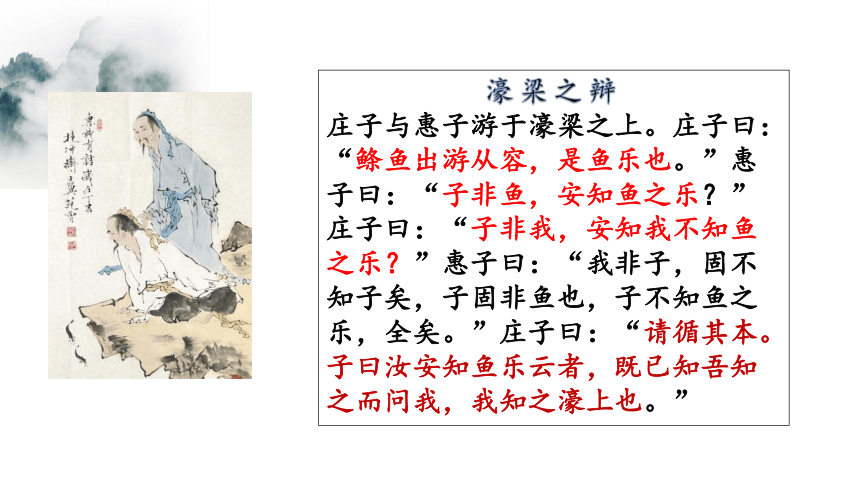 濠梁之辩
庄子与惠子游于濠梁之上。庄子曰：
“鲦鱼出游从容，是鱼乐也。”惠
子曰：“子非鱼，安知鱼之乐？”
庄子曰：“子非我，安知我不知鱼
之乐？”惠子曰：“我非子，固不
知子矣，子固非鱼也，子不知鱼之
乐，全矣。”庄子曰：“请循其本。
子曰汝安知鱼乐云者，既已知吾知
之而问我，我知之濠上也。”